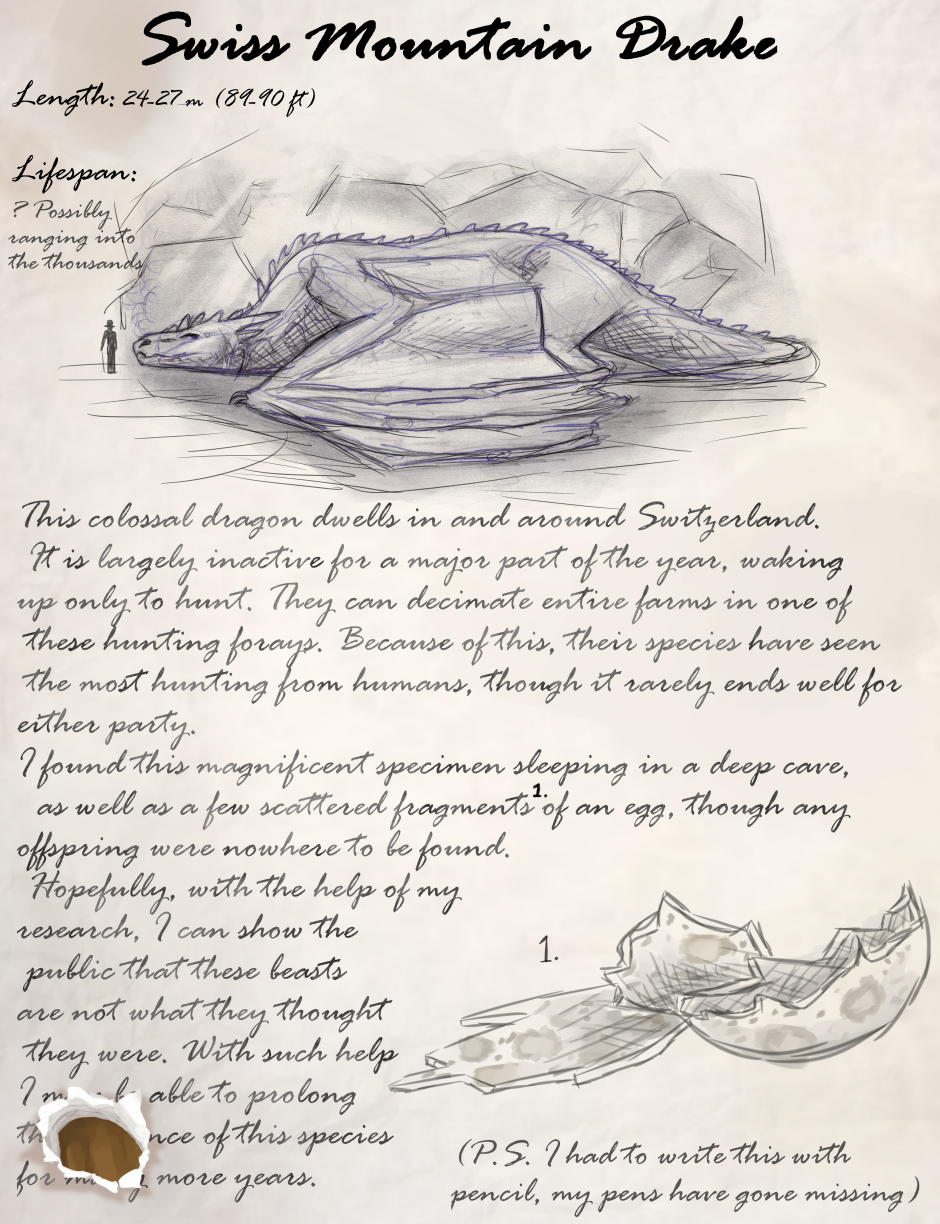 Swiss Mountain Drake
Length: 24-27 m (89-90 ft)
Lifespan:
? Possibly
ranging into
the thousands
This colossal dragon dwells in and around Switzerland.
It is largely inactive for a major part of the year, waking
up only to hunt. They can decimate entire farms in one of
these hunting forays. Because of this, their species have seen
the most hunting from humans, though it rarely ends well for
either party.
I found this magnificent specimen sleeping in a deep cave,
as well as a few scattered fragments 1. of an egg, though any
offspring were nowhere to be found.
Hopefully, with the help of my
research, I can show the
public that these beasts
are not what they thought
they were. With such help
I able to prolong
of this species
for more years.
1.
(P.S. I had to write this with
pencil, my pens have gone missing)